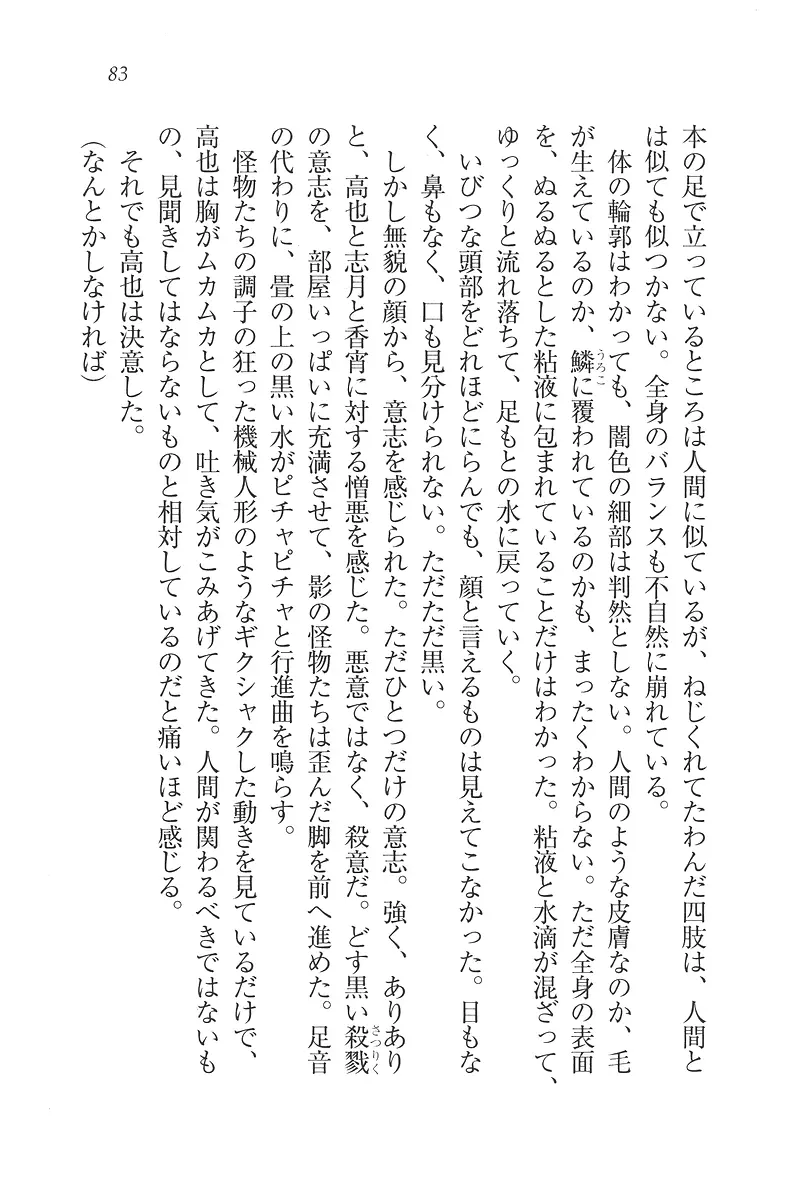 83
本の足で立っているところは人間に似ているが、ねじくれてたわんだ四肢は、人間と
は似ても似つかない。全身のバランスも不自然に崩れている。
体の輪郭はわかっても、闇色の細部は判然としない。人間のような皮膚なのか、毛
が生えているのか、鱗に覆われているのかも、まったくわからない。ただ全身の表面
うろこ
を、ぬるぬるとした粘液に包まれていることだけはわかった。粘液と水滴が混ざって、
ゆっくりと流れ落ちて、足もとの水に戻っていく。
いびつな頭部をどれほどにらんでも、顔と言えるものは見えてこなかった。目もな
く、鼻もなく、口も見分けられない。ただただ黒い。
しかし無貌の顔から、意志を感じられた。ただひとつだけの意志。強く、ありあり
と、高也と志月と香宵に対する憎悪を感じた。悪意ではなく、殺意だ。どす黒い殺戮
さつりく
の意志を、部屋いっぱいに充満させて、影の怪物たちは歪んだ脚を前へ進めた。足音
の代わりに、畳の上の黒い水がピチャピチャと行進曲を鳴らす。
怪物たちの調子の狂った機械人形のようなギクシャクした動きを見ているだけで、
高也は胸がムカムカとして、吐き気がこみあげてきた。人間が関わるべきではないも
の、見聞きしてはならないものと相対しているのだと痛いほど感じる。
それでも高也は決意した。
(なんとかしなければ)